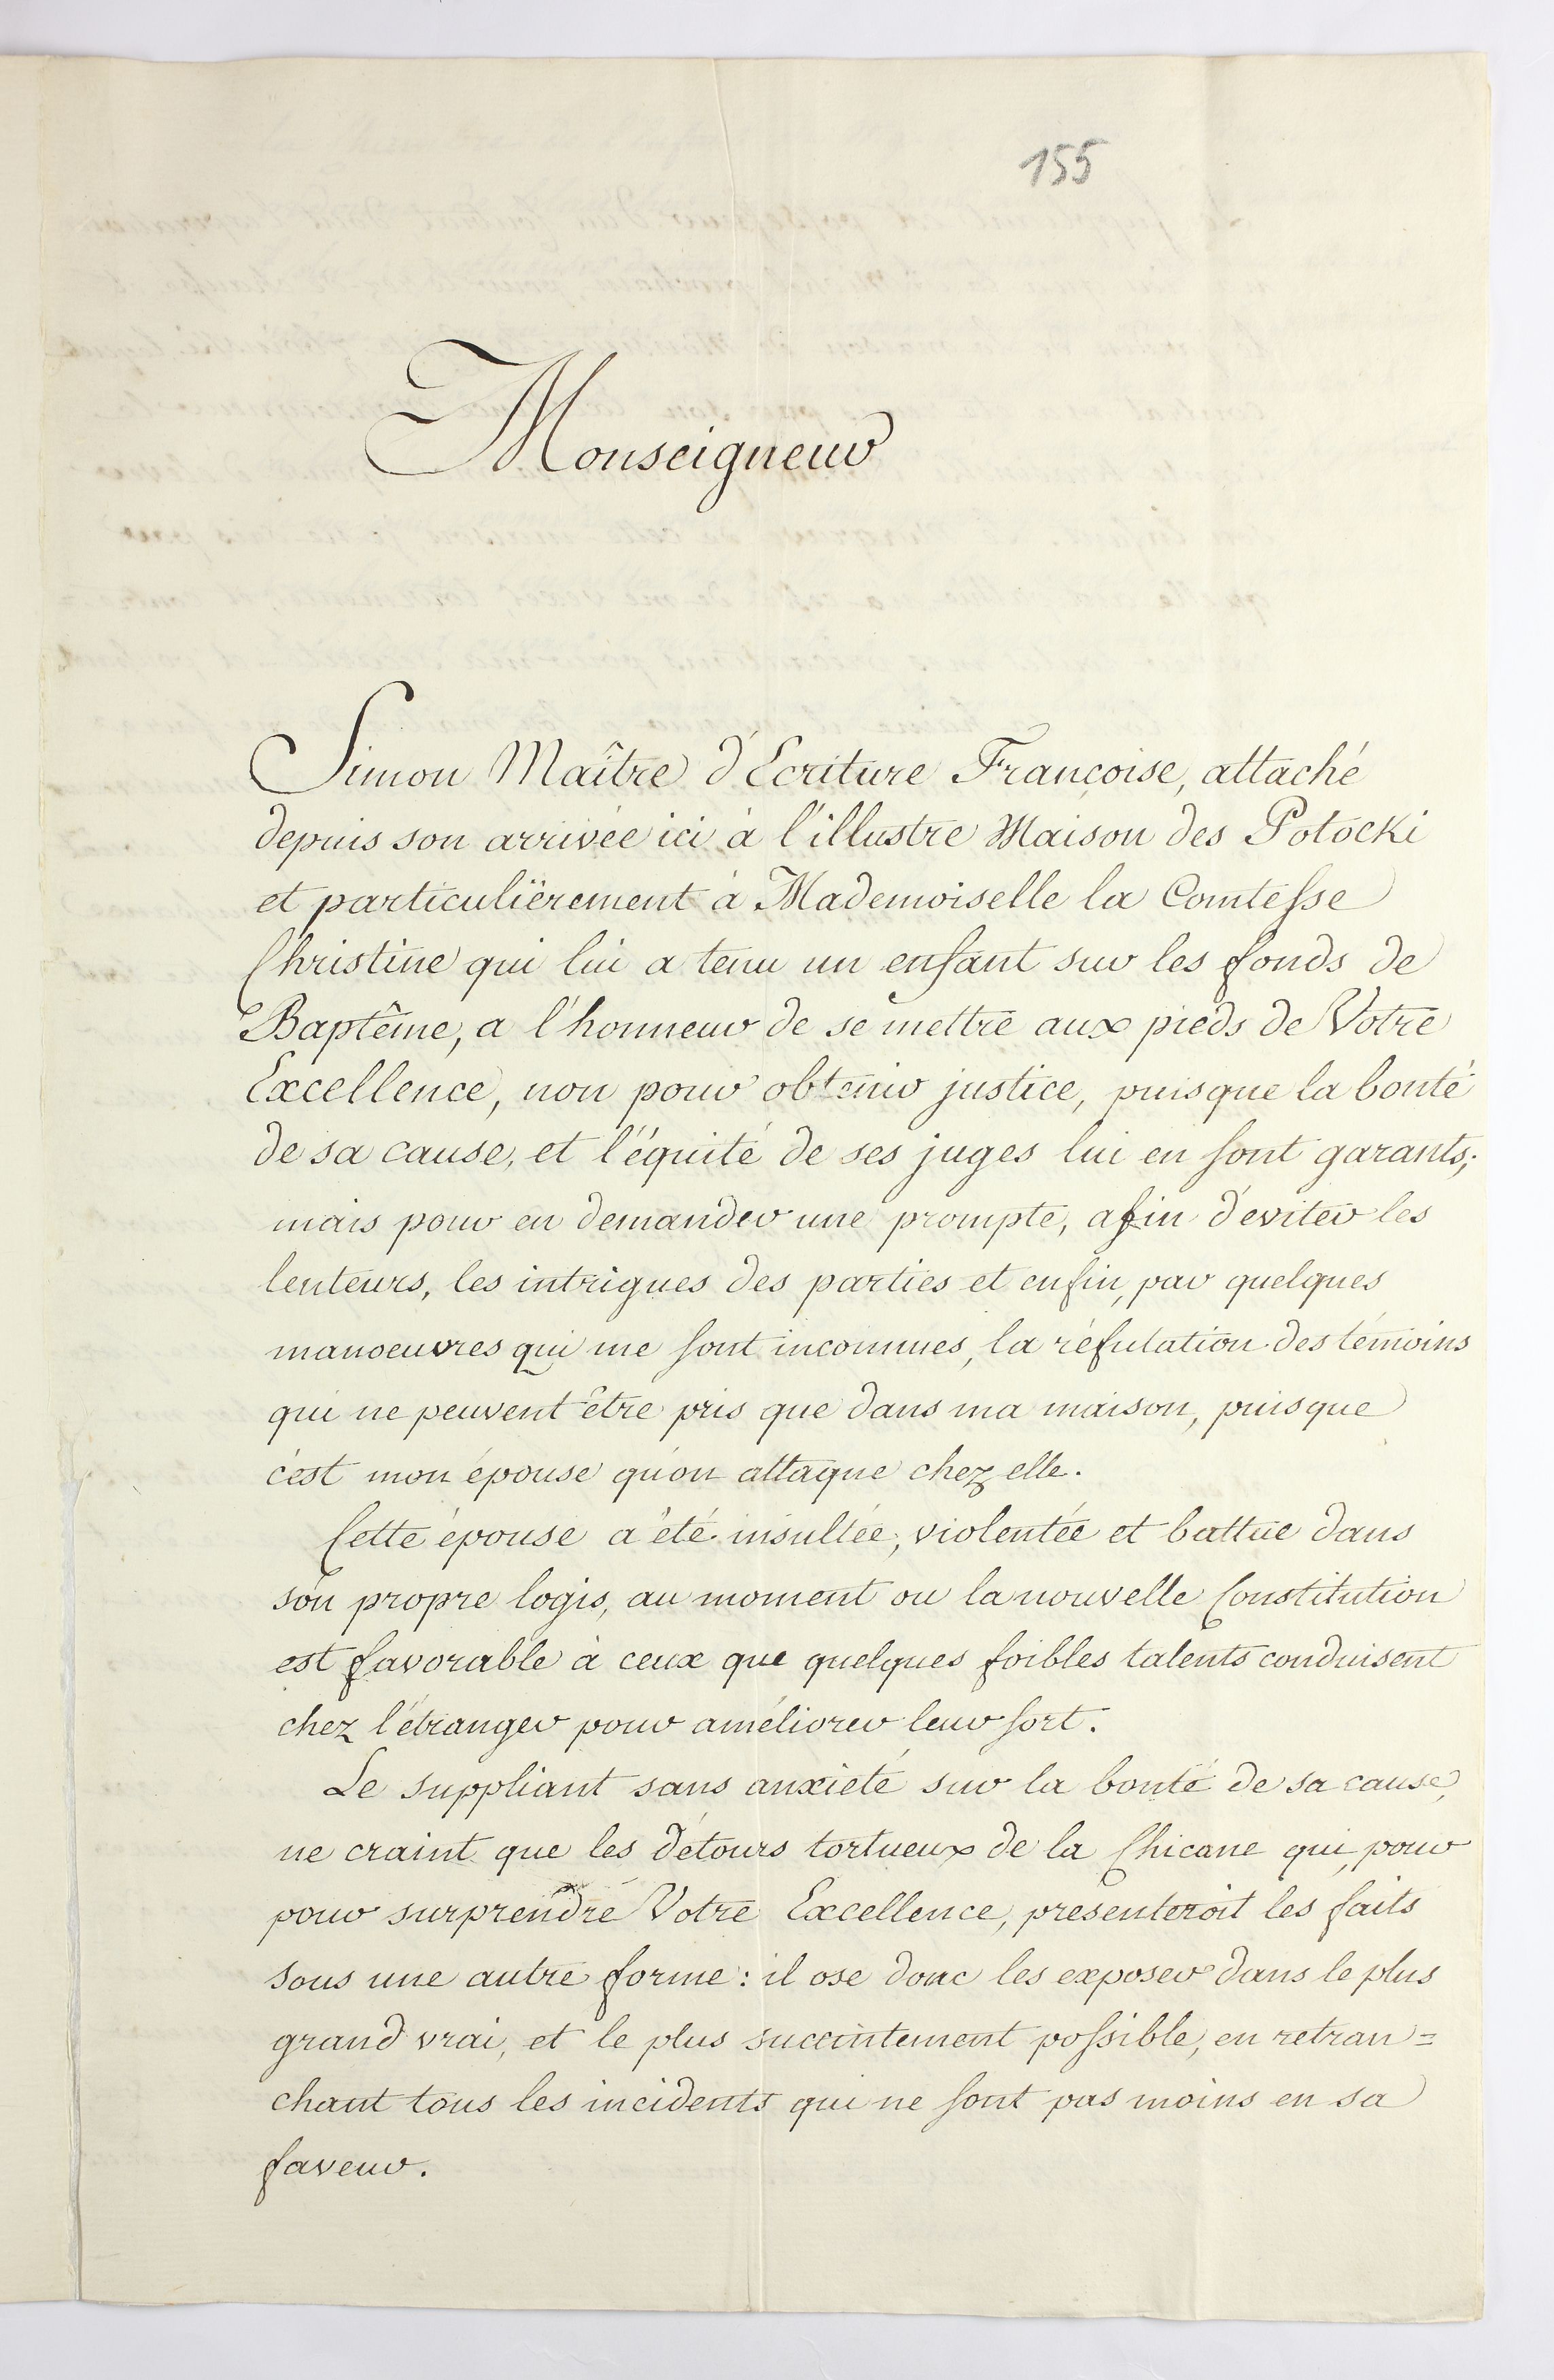 155
Monseigneur
Simon Maître d'Ecriture Françoise, attaché
depuis son arrivée ici à l'illustre Maison des Potocki
et particuliërement à Mademoiselle la Comtesse
Christine qui lui a tenu un enfant sur les fonds de
Baptême, a l'honneur de se mettre aux pieds de Votre
Excellence, non pour obtenir justice, puisque la bonté
de sa cause, et l'équité de ses juges lui en sont garants;
mais pour en demander une prompte, afin d'eviter les
lenteurs, les intrigues des parties et enfin, par quelques
manoeuvres qui me sont inconnues, la réfutation des témoins
qui ne peuvent être pris que dans ma maison, puisque
c'est mon épouse qu'on attaque chez elle.
Cette épouse a été insultée, violentée et battue dans
son propre logis, au moment ou la nouvelle Constitution
est favorable à ceux que quelques foibles talents conduisent
chez l'étranger pour améliorer leur sort.
Le suppliant sans anxieté sur la bonté de sa cause,
ne craint que les détours tortueux de la Chicane qui, pour
pour surprendre Votre Excellence, presenteroit les faits
sous une autre forme: il ose donc les exposer dans le plus
grand vrai, et le plus succintement possible, en retran=
chant tous les incidents qui ne sont pas moins en sa
faveur.